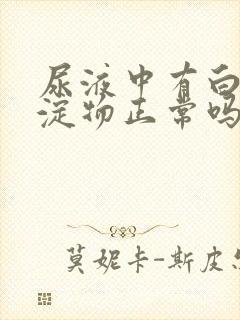 尿液中有白
淀物正常吗
莫妮卡-斯皮